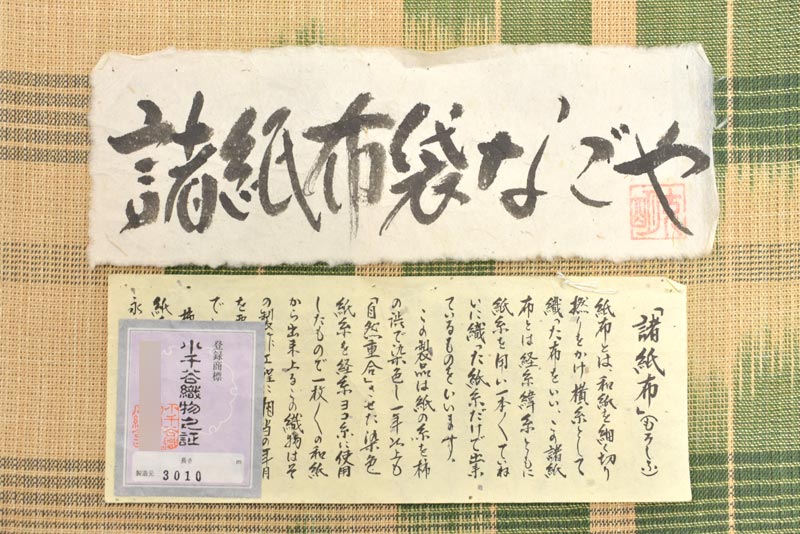 諸紙布袋なごや
「諸紙布」(もろしふ)
紙布とは和紙を細く切り
撚りをかけ横糸として
織った布をいい、この諸紙
布とは経糸緯糸ともに
紙糸を用い一本〱てね
いに織った紙糸だけで出来
ているものをいいます。
この製品は紙の糸を柿
の渋で染色し一年以上も
「自然重合」させた染色
紙糸を経糸ヨコ糸に使用
したもので一枚〱の和紙
から出来上るこの織物はそ
の製作工程に相当の年月
を
で
紙
永
登録商標
小千谷織物之証
長さ
m
製造元 3010